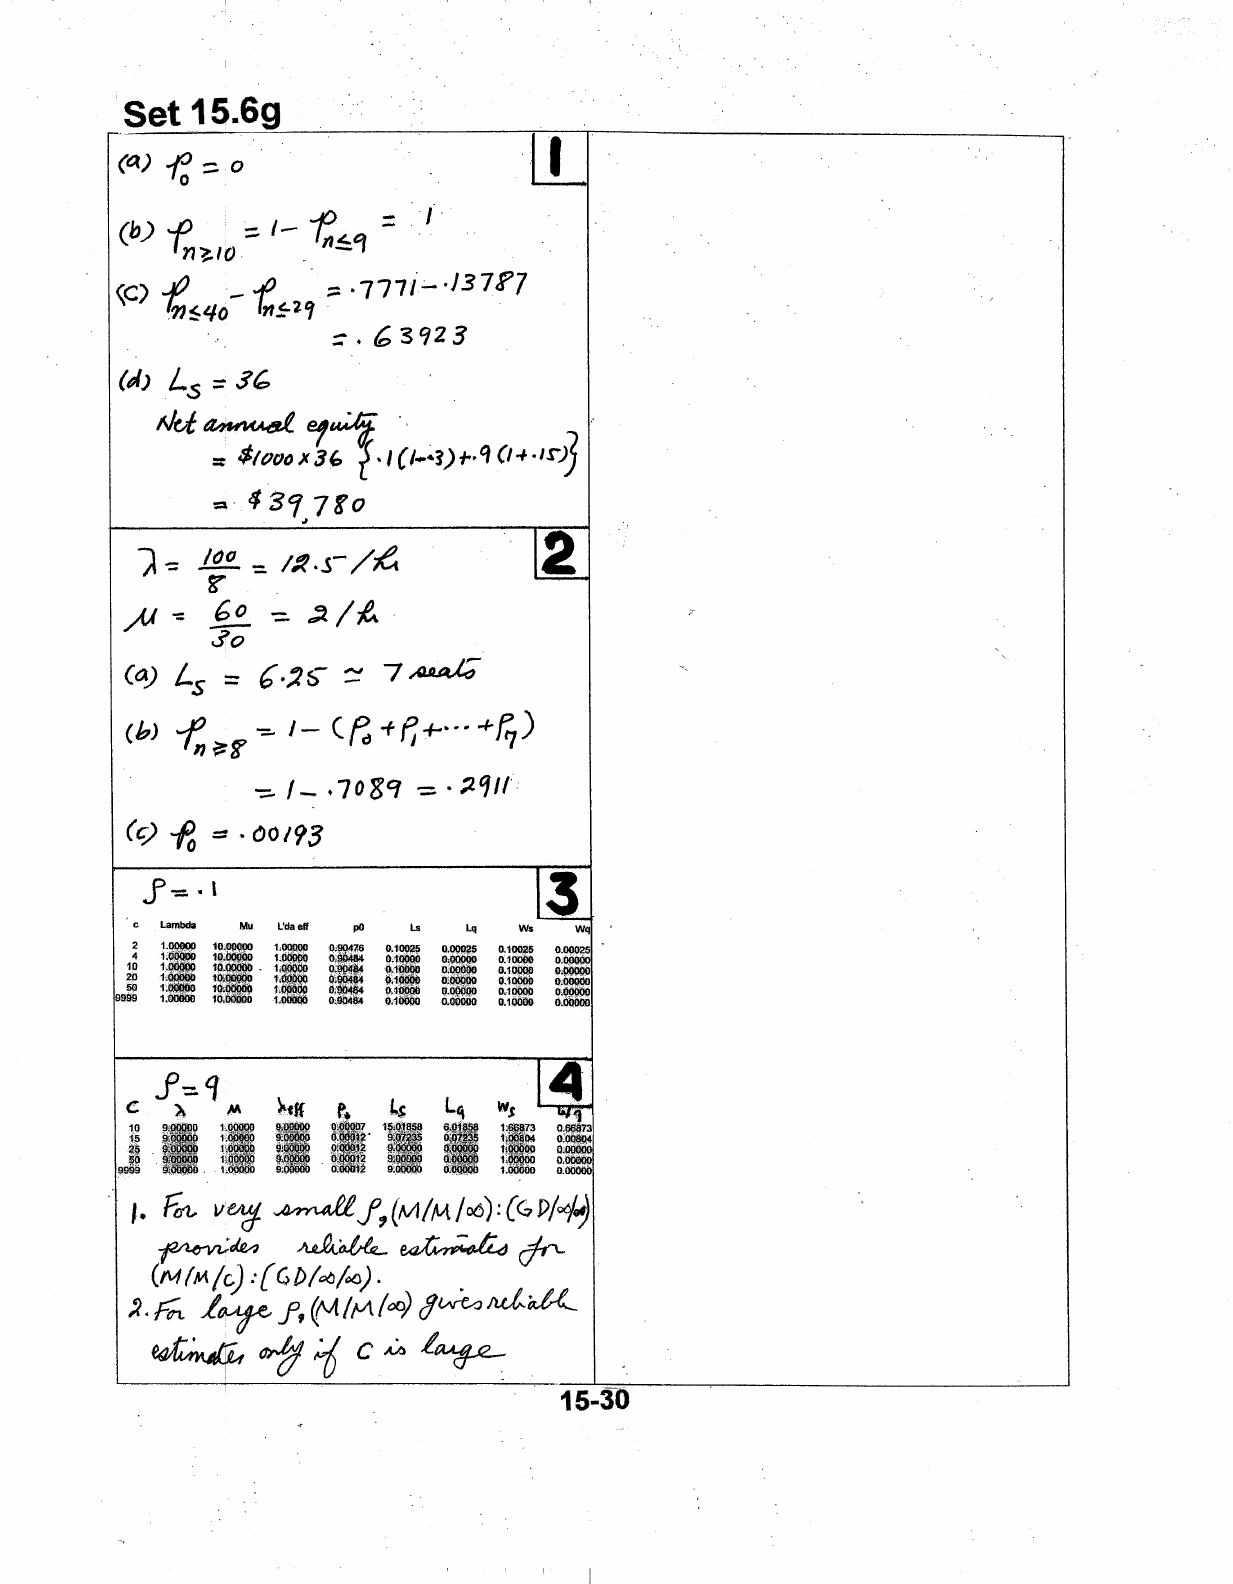 Set 15.6g
1
(a) p₀ = 0
(b) p_{n≥10} = 1 - p_{n≤9} = 1
(c) p_{n≤40} - p_{n≤29} = .7771 - .13787
= .63923
(d) Ls = 36
Net annual equity
= $1000 x 36 {.1(1-.3)+.9(1+.15)}
= $39,780
2
λ = 100/8 = 12.5/hr
μ = 60/30 = 2/hr
(a) Ls = 6.25 ≃ 7 seats
(b) p_{n≥8} = 1 - (p₀ + p₁ + ... + p₇)
= 1 - .7089 = .2911
(c) p₀ = .00193
3
ρ = .1
c Lambda Mu L'da eff p0 Ls Lq Ws Wq
2 1.00000 10.00000 1.00000 0.90476 0.10025 0.00025 0.10025 0.00025
4 1.00000 10.00000 1.00000 0.90484 0.10000 0.00000 0.10000 0.00000
10 1.00000 10.00000 1.00000 0.90484 0.10000 0.00000 0.10000 0.00000
20 1.00000 10.00000 1.00000 0.90484 0.10000 0.00000 0.10000 0.00000
50 1.00000 10.00000 1.00000 0.90484 0.10000 0.00000 0.10000 0.00000
9999 1.00000 10.00000 1.00000 0.90484 0.10000 0.00000 0.10000 0.00000
4
ρ = 9
C λ μ λeff P₀ Ls Lq Ws Wq
10 9.00000 1.00000 9.00000 0.00007 15.01858 6.01858 1.66873 0.66873
15 9.00000 1.00000 9.00000 0.00012 9.07235 0.07235 1.00804 0.00804
25 9.00000 1.00000 9.00000 0.00012 9.00000 0.00000 1.00000 0.00000
50 9.00000 1.00000 9.00000 0.00012 9.00000 0.00000 1.00000 0.00000
9999 9.00000 1.00000 9.00000 0.00012 9.00000 0.00000 1.00000 0.00000
1. For very small ρ, (M/M/∞):(GD/∞/∞)
provides reliable estimates for
(M/M/c):(GD/∞/∞).
2. For large ρ, (M/M/∞) gives reliable
estimates only if C is large
15-30